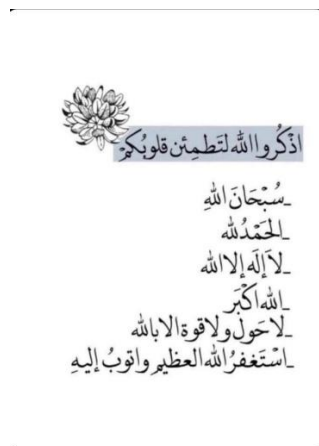 اذْكُروا الله لتَطمِئن قلوبُكمْ
ـ سُبْحَانَ اللهِ
ـ الحَمْدُلله
ـ لَا إلَه إلا الله
ـ الله اكْبَر
ـ لا حَول ولا قوة الا بالله
ـ اسْتَغفرُ الله العظيم واتوبُ إليهِ